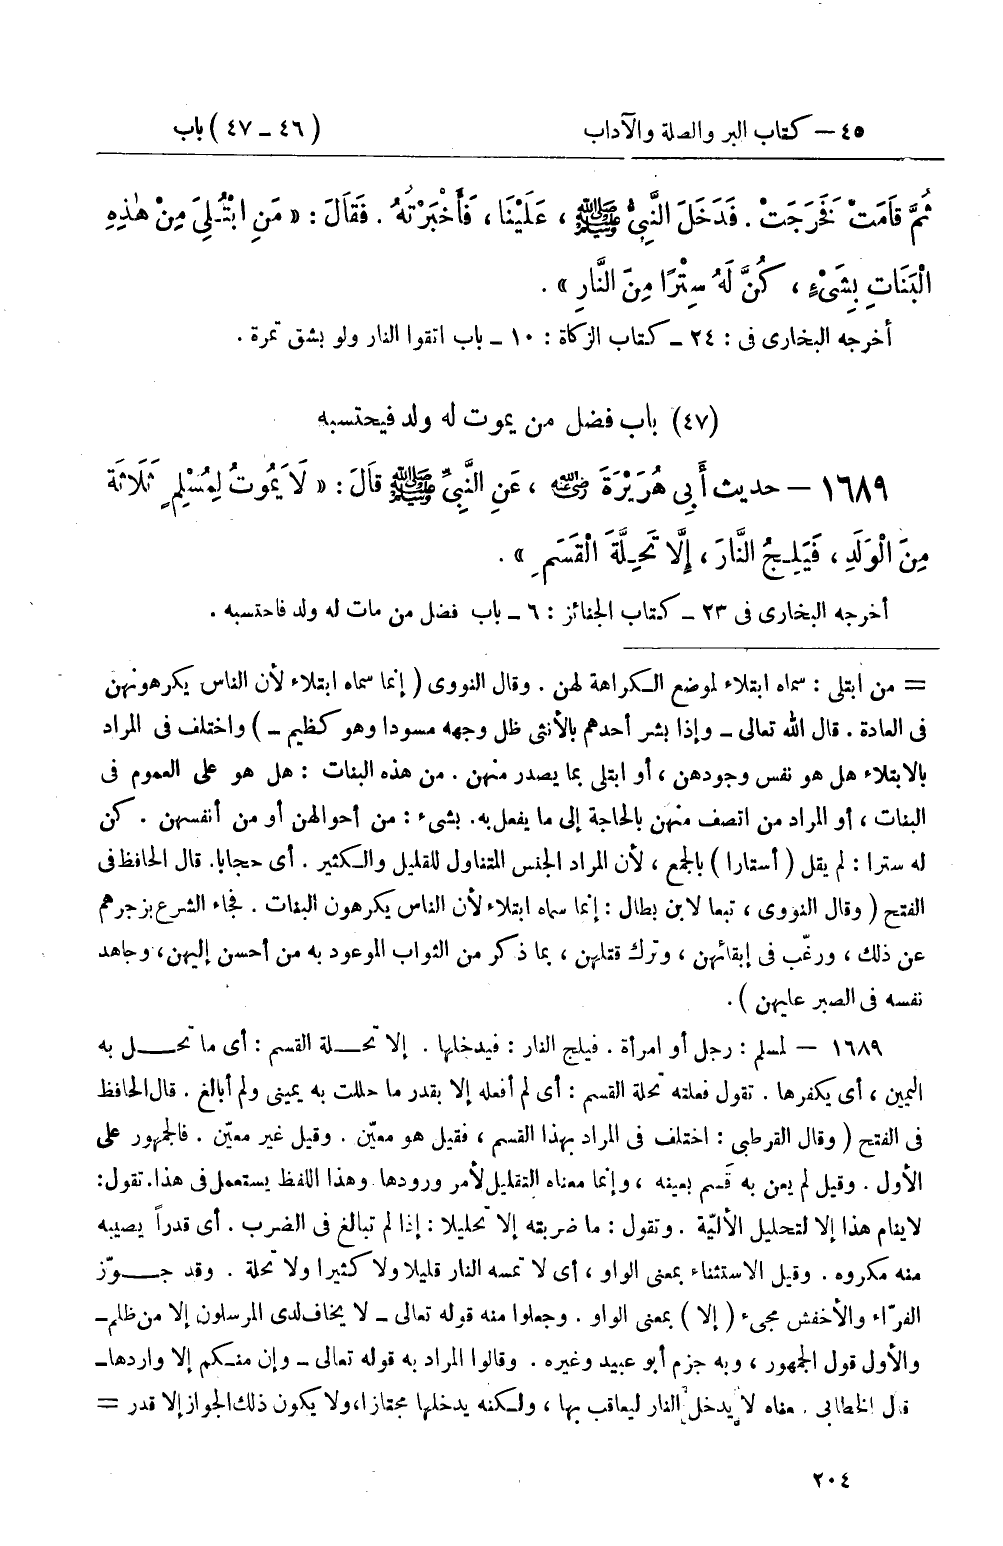 ٤٥ – كتاب البر والصلة والآداب (٤٦ – ٤٧) باب
ثُمَّ قَامَتْ فَخَرَجَتْ . فَدَخَلَ النَّبِيُّ ﷺ ، عَلَيْنَا ، فَأَخْبَرْتُهُ . فَقَالَ : « مَنِ ابْتُلِيَ مِنْ هٰذِهِ
الْبَنَاتِ بِشَىْءٍ ، كُنَّ لَهُ سِتْرًا مِنَ النَّارِ » .
أخرجه البخارى فى : ٢٤ – كتاب الزكاة : ١٠ – باب اتقوا النار ولو بشق تمرة .
(٤٧) باب فضل من يموت له ولد فيحتسبه
١٦٨٩ – حديث أَبِى هُرَيْرَةَ رضي الله عنه ، عَنِ النَّبِيِّ ﷺ قَالَ : « لَا يَمُوتُ لِمُسْلِمٍ ثَلَاثَة
مِنَ الْوَلَدِ ، فَيَلِجُ النَّارَ ، إِلَّا تَحِلَّةَ الْقَسَمِ » .
أخرجه البخارى فى ٢٣ – كتاب الجنائز : ٦ – باب فضل من مات له ولد فاحتسبه .
= من ابتلى : سماه ابتلاء لموضع الكراهة لهن . وقال النووى ( إنما سماه ابتلاء لأن الناس يكرهونهن
فى العادة . قال الله تعالى – وإذا بشر أحدهم بالأنثى ظل وجهه مسودا وهو كظيم – ) واختلف فى المراد
بالابتلاء هل هو نفس وجودهن ، أو ابتلى بما يصدر منهن . من هذه البنات : هل هو على العموم فى
البنات ، أو المراد من اتصف منهن بالحاجة إلى ما يفعل به . بشىء : من أحوالهن أو من أنفسهن . كن
له سترا : لم يقل ( أستارا ) بالجمع ، لأن المراد الجنس المتناول للقليل والكثير . أى حجابا . قال الحافظ فى
الفتح ( وقال النووى ، تبعا لابن بطال : إنما سماه ابتلاء لأن الناس يكرهون البنات . فجاء الشرع بزجرهم
عن ذلك ، ورغّب فى إبقائهن ، وترك قتلهن ، بما ذكر من الثواب الموعود به من أحسن إليهن ، وجاهد
نفسه فى الصبر عليهن ) .
١٦٨٩ – لمسلم : رجل أو امرأة . فيلج النار : فيدخلها . إلا تحلة القسم : أى ما تحل به
اليمين ، أى يكفرها . تقول فعلته تحلة القسم : أى لم أفعله إلا بقدر ما حللت به يمينى ولم أبالغ . قال الحافظ
فى الفتح ( وقال القرطبى : اختلف فى المراد بهذا القسم ، فقيل هو معيّن . وقيل غير معيّن . فالجمهور على
الأول . وقيل لم يعن به قَسم بعينه ، وإنما معناه التقليل لأمر ورودها . وهذا اللفظ يستعمل فى هذا . تقول :
لا ينام هذا إلا لتحليل الأليّة . وتقول : ما ضربته إلا تحليلا : إذا لم تبالغ فى الضرب . أى قدراً يصيبه
منه مكروه . وقيل الاستثناء بمعنى الواو ، أى لا تمسه النار قليلا ولا كثيرا ولا تحلة . وقد جوّز
الفرّاء والأخفش مجىء ( إلا ) بمعنى الواو . وجعلوا منه قوله تعالى – لا يخاف لدى المرسلون إلا من ظلم –
والأول قول الجمهور ، وبه جزم أبو عبيد وغيره . وقالوا المراد به قوله تعالى – وإن منكم إلا واردها –
قال الخطابى . معناه لا يدخل النار ليعاقب بها ، ولكنه يدخلها مجتازا ، ولا يكون ذلك الجواز إلا قدر =
٢٠٤